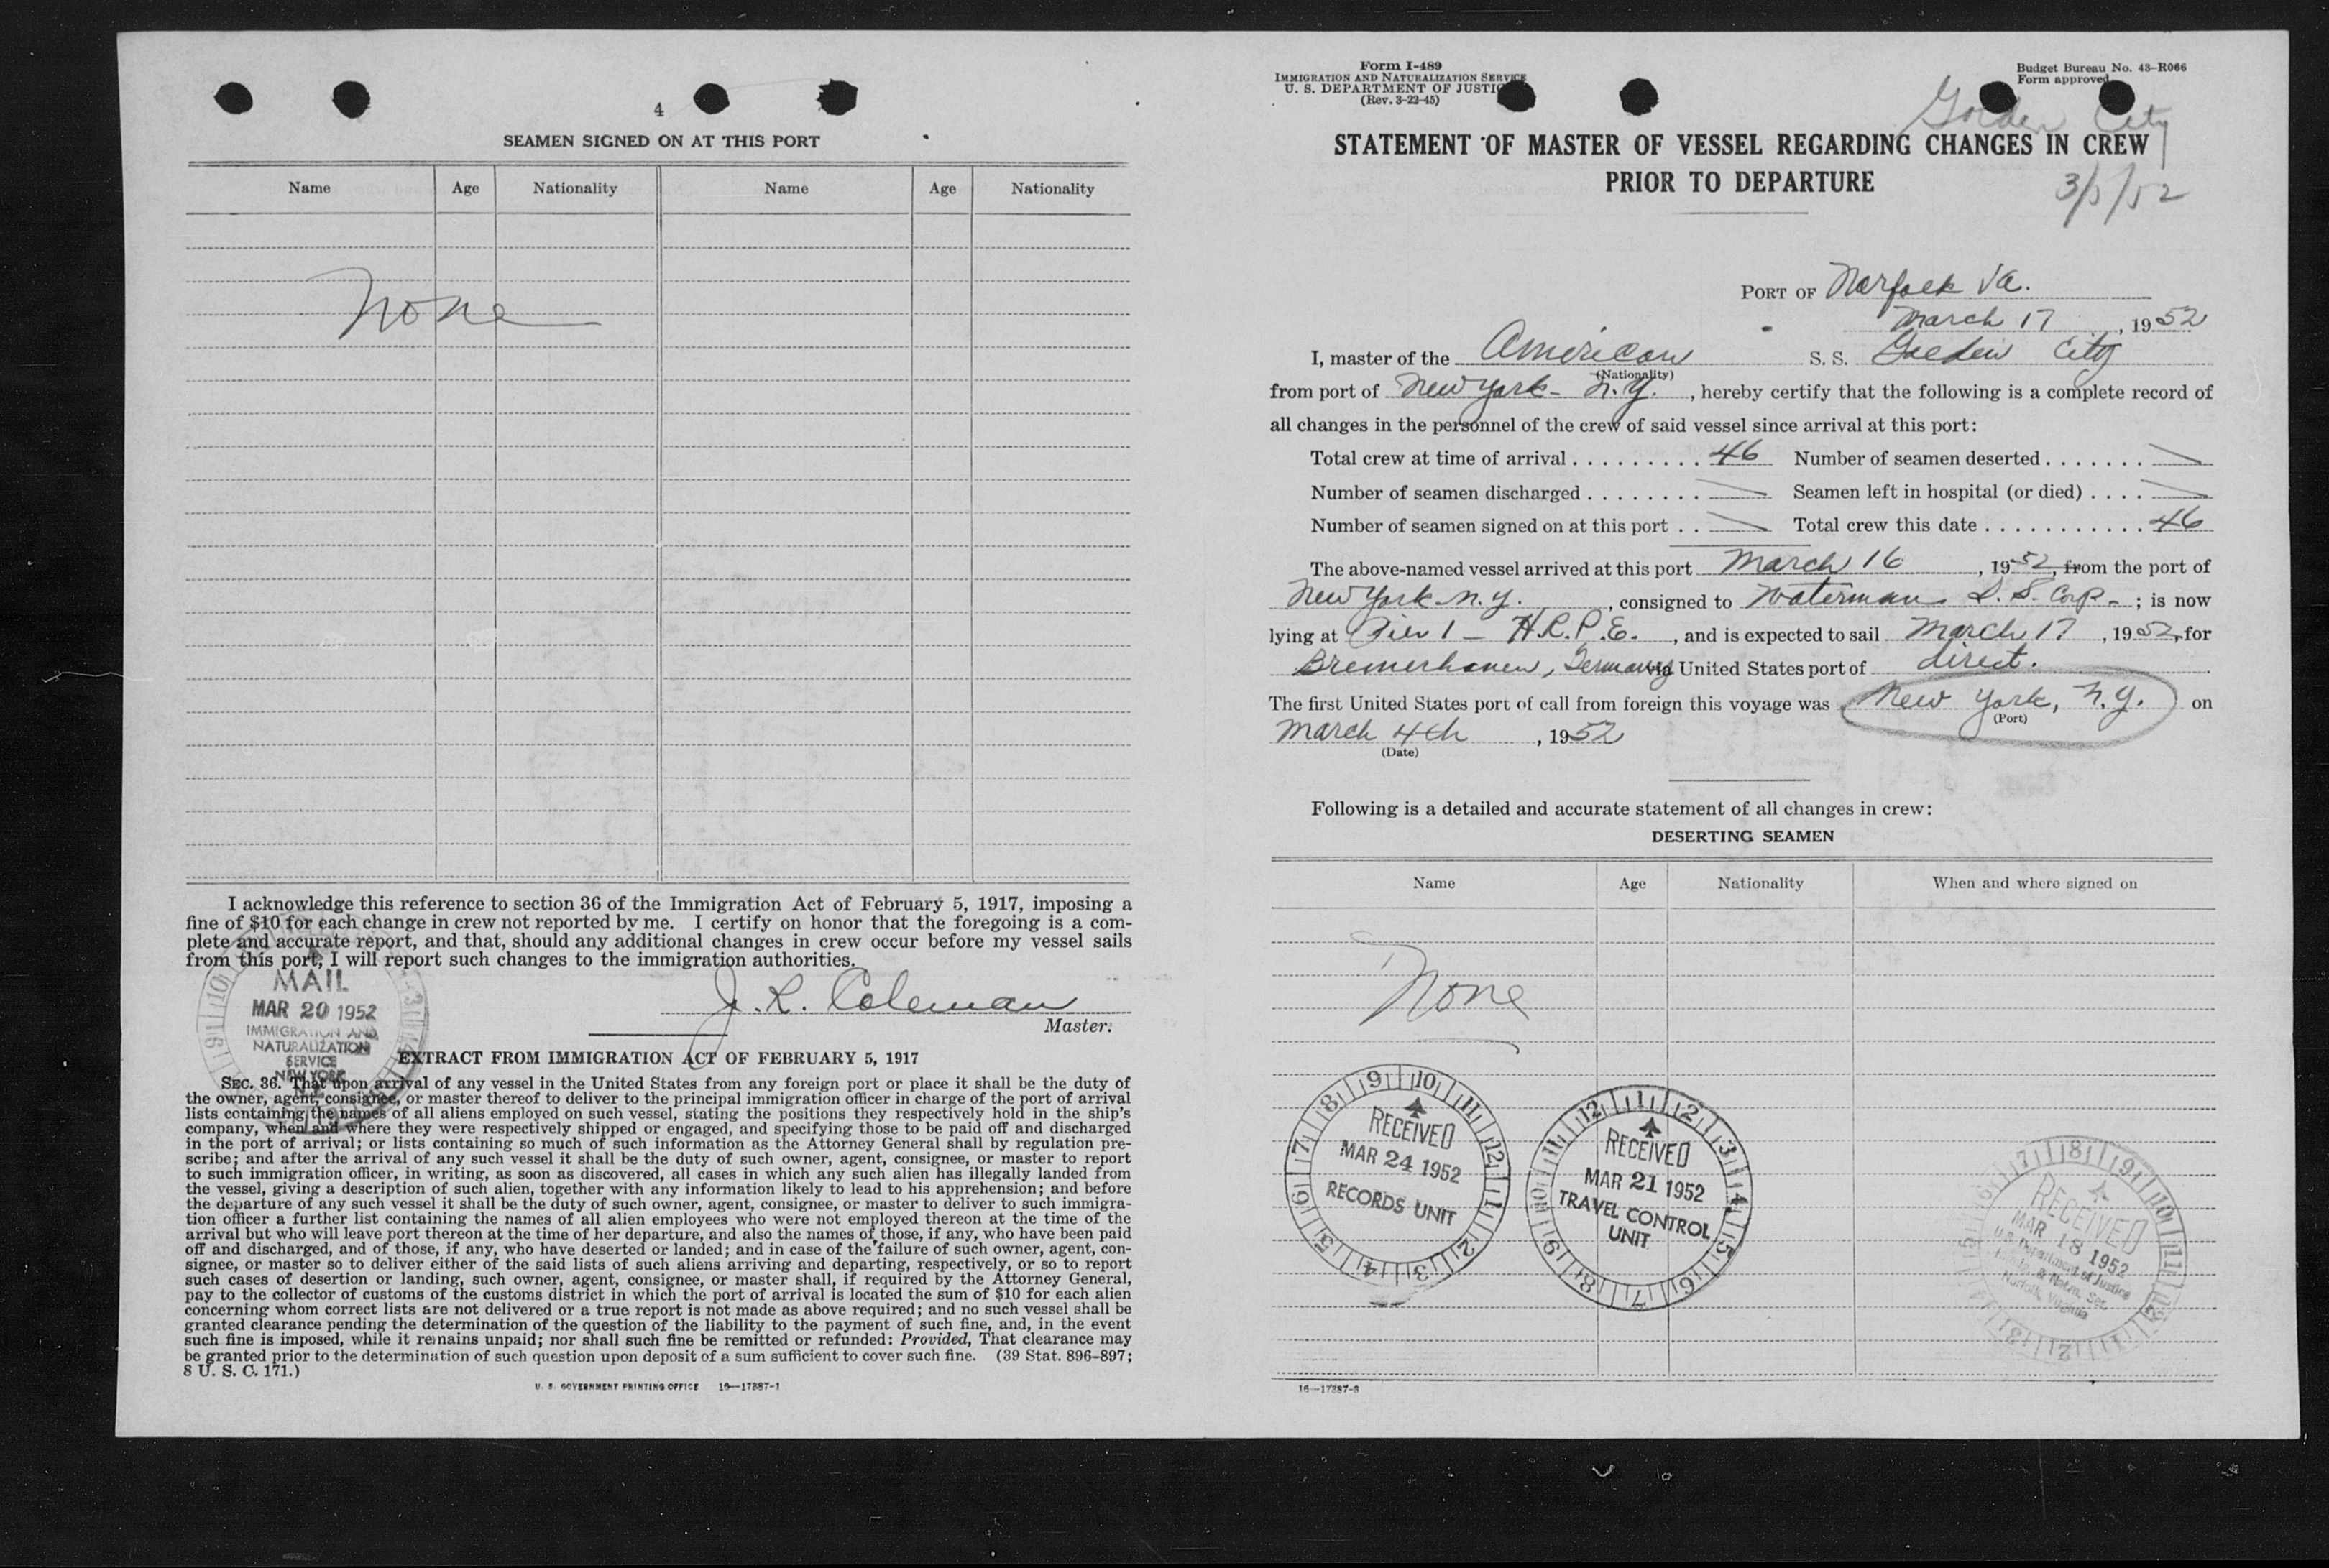 4
SEAMEN SIGNED ON AT THIS PORT
Name Age Nationality Name Age Nationality
None
I acknowledge this reference to section 36 of the Immigration Act of February 5, 1917, imposing a
fine of $10 for each change in crew not reported by me. I certify on honor that the foregoing is a com-
plete and accurate report, and that, should any additional changes in crew occur before my vessel sails
from this port, I will report such changes to the immigration authorities.
J. R. Coleman
Master.
MAIL
MAR 20 1952
IMMIGRATION AND
NATURALIZATION
SERVICE
NEW YORK
EXTRACT FROM IMMIGRATION ACT OF FEBRUARY 5, 1917
SEC. 36. That upon arrival of any vessel in the United States from any foreign port or place it shall be the duty of
the owner, agent, consignee, or master thereof to deliver to the principal immigration officer in charge of the port of arrival
lists containing the names of all aliens employed on such vessel, stating the positions they respectively hold in the ship's
company, when and where they were respectively shipped or engaged, and specifying those to be paid off and discharged
in the port of arrival; or lists containing so much of such information as the Attorney General shall by regulation pre-
scribe; and after the arrival of any such vessel it shall be the duty of such owner, agent, consignee, or master to report
to such immigration officer, in writing, as soon as discovered, all cases in which any such alien has illegally landed from
the vessel, giving a description of such alien, together with any information likely to lead to his apprehension; and before
the departure of any such vessel it shall be the duty of such owner, agent, consignee, or master to deliver to such immigra-
tion officer a further list containing the names of all alien employees who were not employed thereon at the time of the
arrival but who will leave port thereon at the time of her departure, and also the names of those, if any, who have been paid
off and discharged, and of those, if any, who have deserted or landed; and in case of the failure of such owner, agent, con-
signee, or master so to deliver either of the said lists of such aliens arriving and departing, respectively, or so to report
such cases of desertion or landing, such owner, agent, consignee, or master shall, if required by the Attorney General,
pay to the collector of customs of the customs district in which the port of arrival is located the sum of $10 for each alien
concerning whom correct lists are not delivered or a true report is not made as above required; and no such vessel shall be
granted clearance pending the determination of the question of the liability to the payment of such fine, and, in the event
such fine is imposed, while it remains unpaid; nor shall such fine be remitted or refunded: Provided, That clearance may
be granted prior to the determination of such question upon deposit of a sum sufficient to cover such fine. (39 Stat. 896-897;
8 U. S. C. 171.)
U. S. GOVERNMENT PRINTING OFFICE 16—17387-1
Form I-489
IMMIGRATION AND NATURALIZATION SERVICE
U. S. DEPARTMENT OF JUSTICE
(Rev. 3-22-45)
Budget Bureau No. 43-R066
Form approved
Golden City
3/5/52
STATEMENT OF MASTER OF VESSEL REGARDING CHANGES IN CREW
PRIOR TO DEPARTURE
PORT OF Norfolk Va.
March 17, 1952
I, master of the American S. S. Golden City
(Nationality)
from port of New York - N.Y., hereby certify that the following is a complete record of
all changes in the personnel of the crew of said vessel since arrival at this port:
Total crew at time of arrival . . . . . . . . . 46 Number of seamen deserted . . . . . . . \
Number of seamen discharged . . . . . . . . \ Seamen left in hospital (or died) . . . . \
Number of seamen signed on at this port . . \ Total crew this date . . . . . . . . . . . 46
The above-named vessel arrived at this port March 16, 1952, from the port of
New York N.Y., consigned to Waterman S.S. Corp -; is now
lying at Pier 1 - H.R.P.E., and is expected to sail March 17, 1952, for
Bremerhaven, Germany via United States port of direct.
The first United States port of call from foreign this voyage was New York, N.Y. on
(Port)
March 4th, 1952
(Date)
Following is a detailed and accurate statement of all changes in crew:
DESERTING SEAMEN
Name Age Nationality When and where signed on
None
9 10 11 12 1 2 3 4 5 6 7 8
RECEIVED
MAR 24 1952
RECORDS UNIT
12 1 2 3 4 5 6 7 8 9 10 11
RECEIVED
MAR 21 1952
TRAVEL CONTROL
UNIT
RECEIVED
MAR 18 1952
U. S. Department of Justice
& Natzn. Ser.
Norfolk, Virginia
16—17387-3